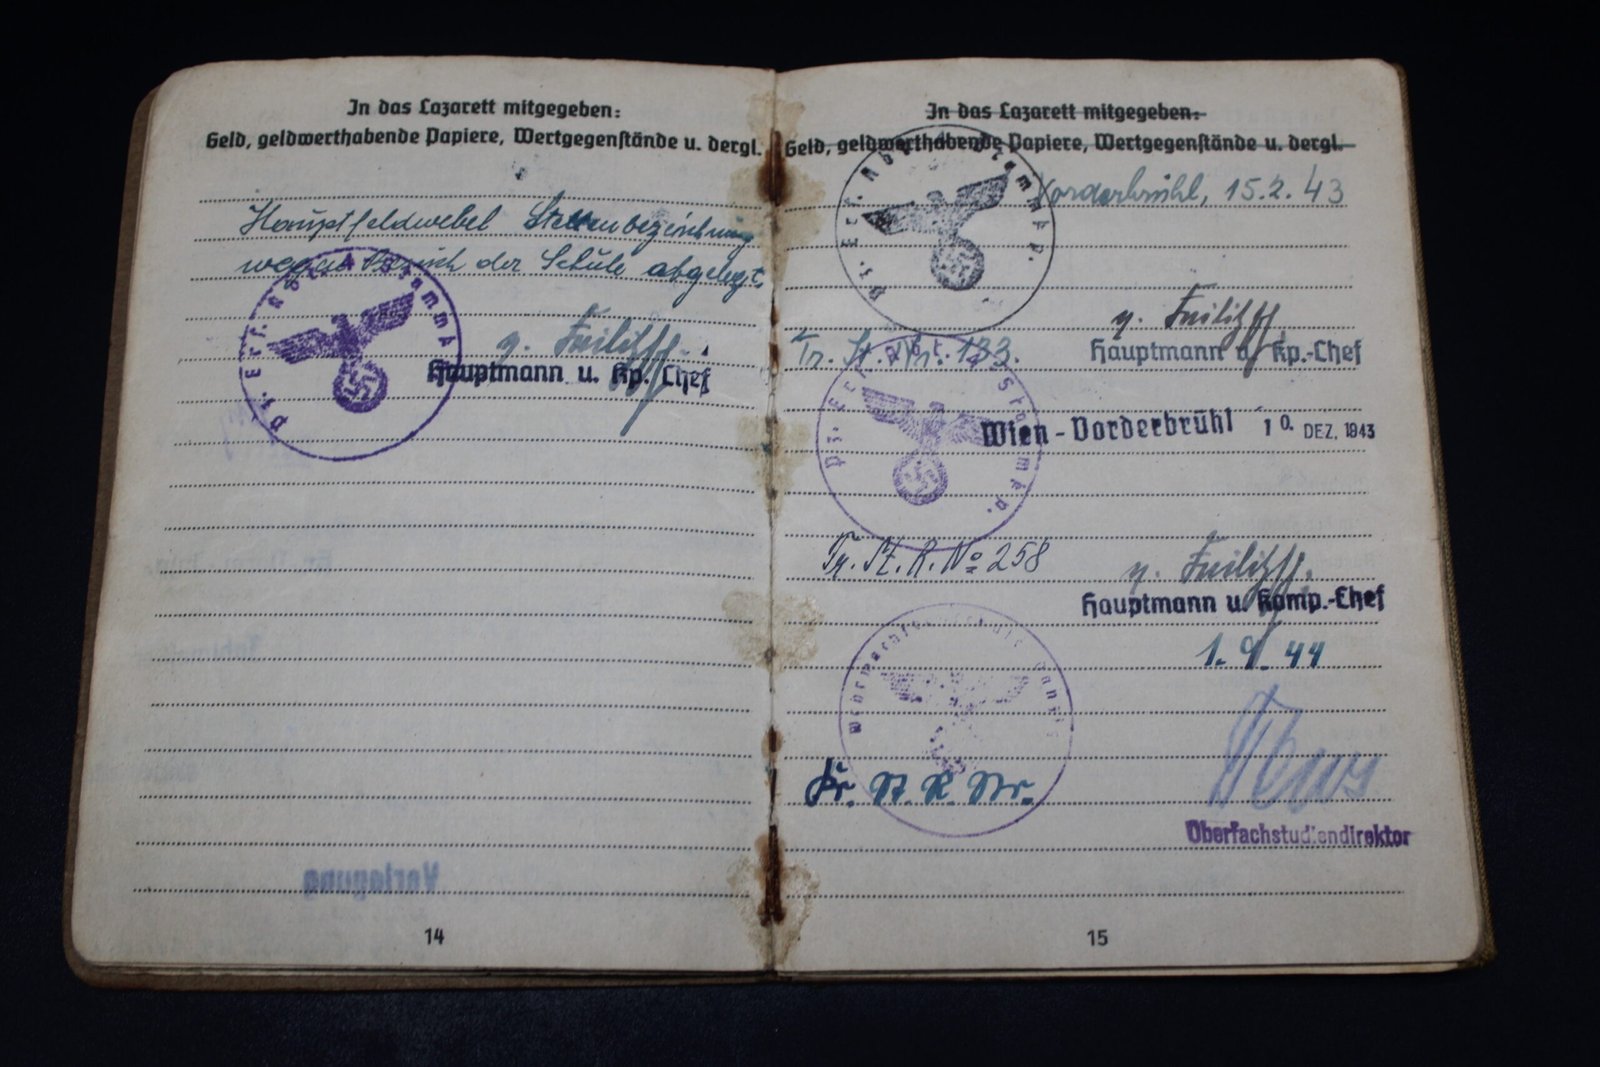 In das Lazarett mitgegeben:
Geld, geldwerthabende Papiere, Wertgegenstände u. dergl.
Hauptfeldwebel Stellenbezeichnung
wegen Besuch der Schule abgelegt.
Pz. Ers. Abt. 4 Stamm
Hauptmann u. Kp. Chef
14
In das Lazarett mitgegeben:
Geld, geldwerthabende Papiere, Wertgegenstände u. dergl.
Pz. Ers. Abt. Stammkp.
Vorderbrühl, 15.2.43
Tr. St. Nr. 133.
Hauptmann u. Kp.-Chef
Pz. Ers. Abt. 4 Stammkp.
Wien-Vorderbrühl 10. DEZ. 1943
Tr. St. R. No 258
Hauptmann u. Komp.-Chef
1. 9. 44
Tr. St. R. Nr.
Oberfachstudiendirektor
15